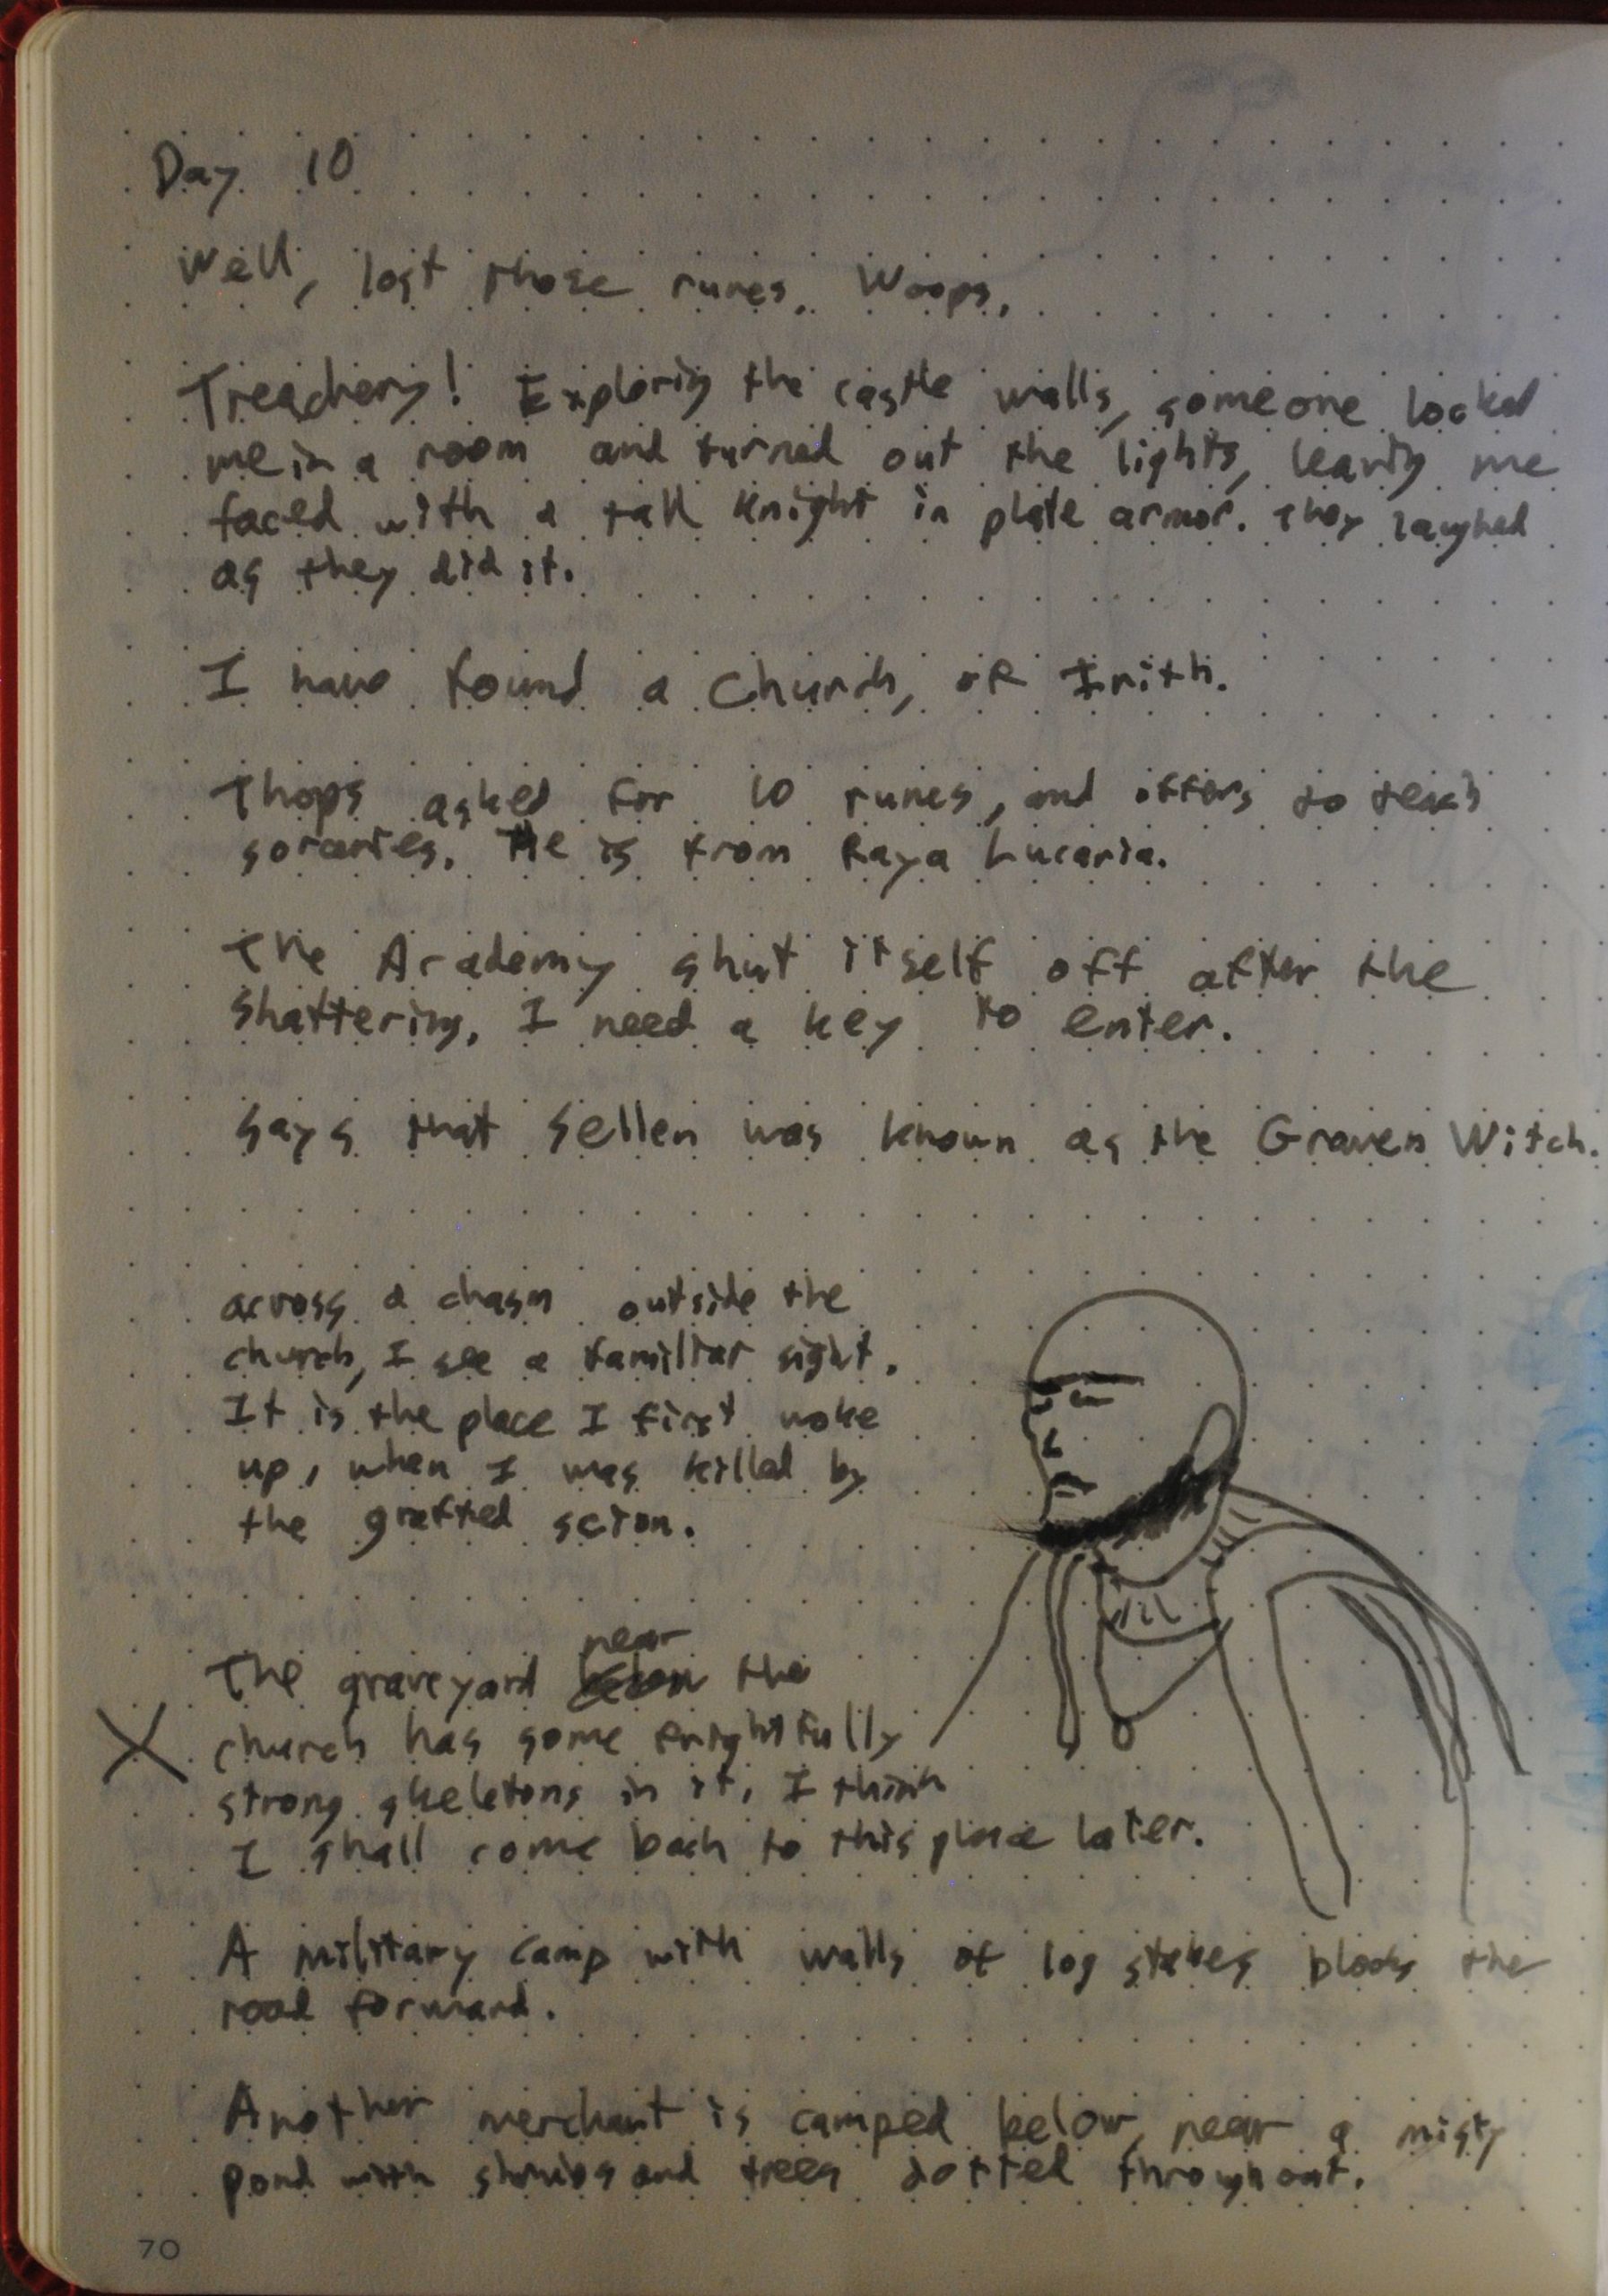 Day 10
Well, lost those runes. Woops.
Treachery! Exploring the castle walls, someone locked
me in a room and turned out the lights, leaving me
faced with a tall knight in plate armor. They laughed
as they did it.
I have found a Church, of Irith.
Thops asked for 10 runes, and offers to teach
sorceries. He is from Raya Lucaria.
The Academy shut itself off after the
shattering. I need a key to enter.
Says that Sellen was known as the Graven Witch.
across a chasm outside the
church, I see a familiar sight.
It is the place I first woke
up, when I was killed by
the grafted scion.
near
The graveyard the
X church has some frightfully
strong skeletons in it. I think
I shall come back to this place later.
A military camp with walls of log stakes blocks the
road forward.
Another merchant is camped below, near a misty
pond with shrubs and trees dotted throughout.
70